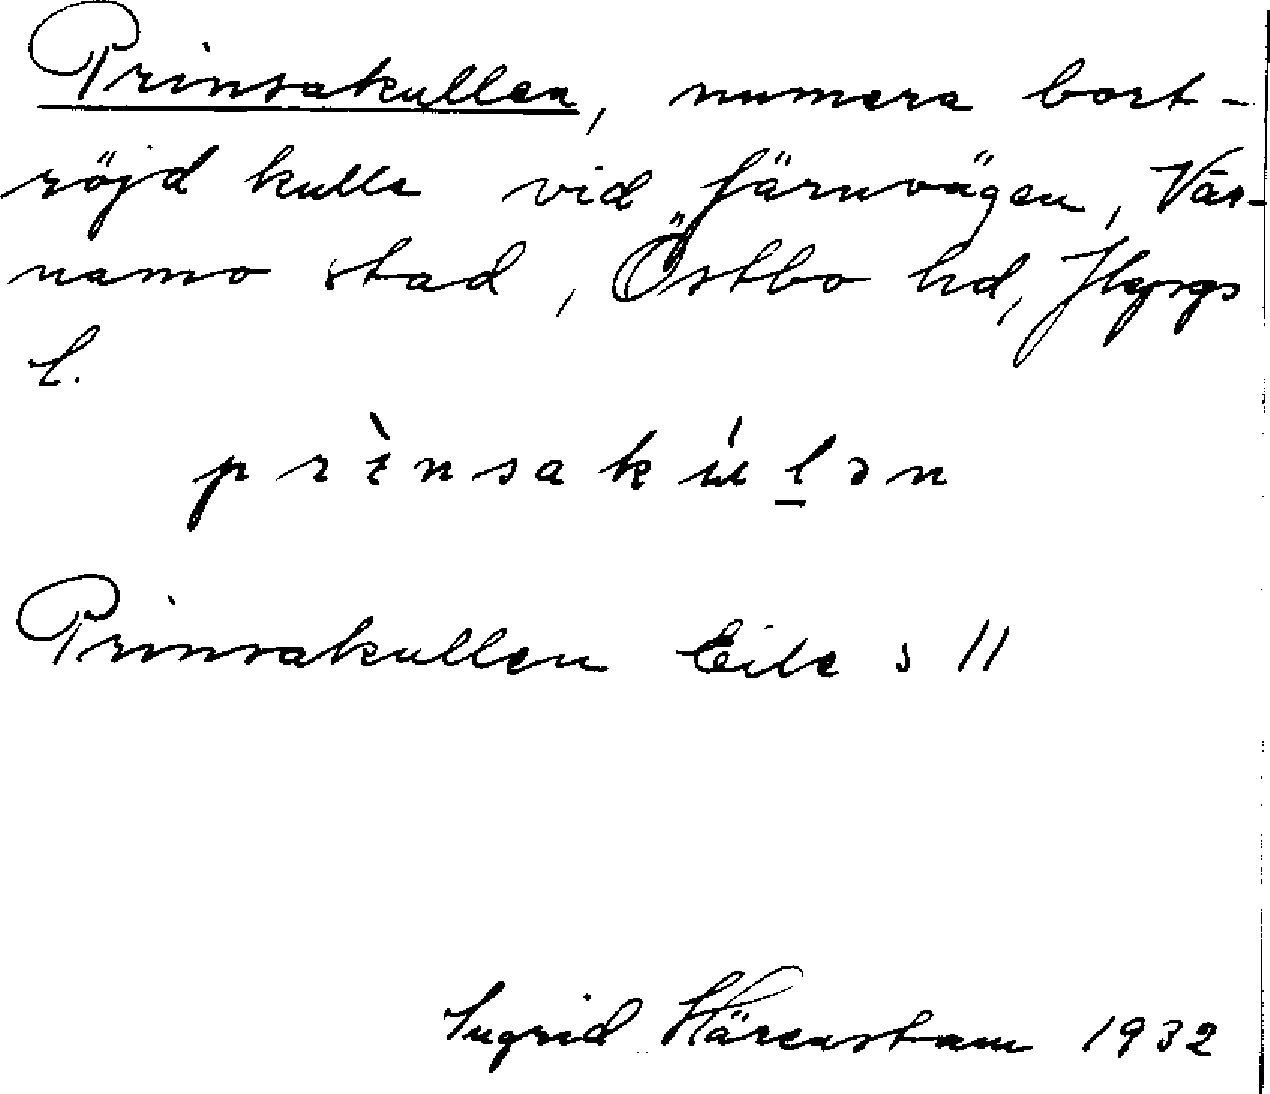 Prinsakullen, numera bort-
röjd kulle vid järnvägen, Vär-
namo stad, Östbo hd, Jkpgs
l.
prìnsakúlən
Prinsakullen Eile s 11
Ingrid Härenstam 1932